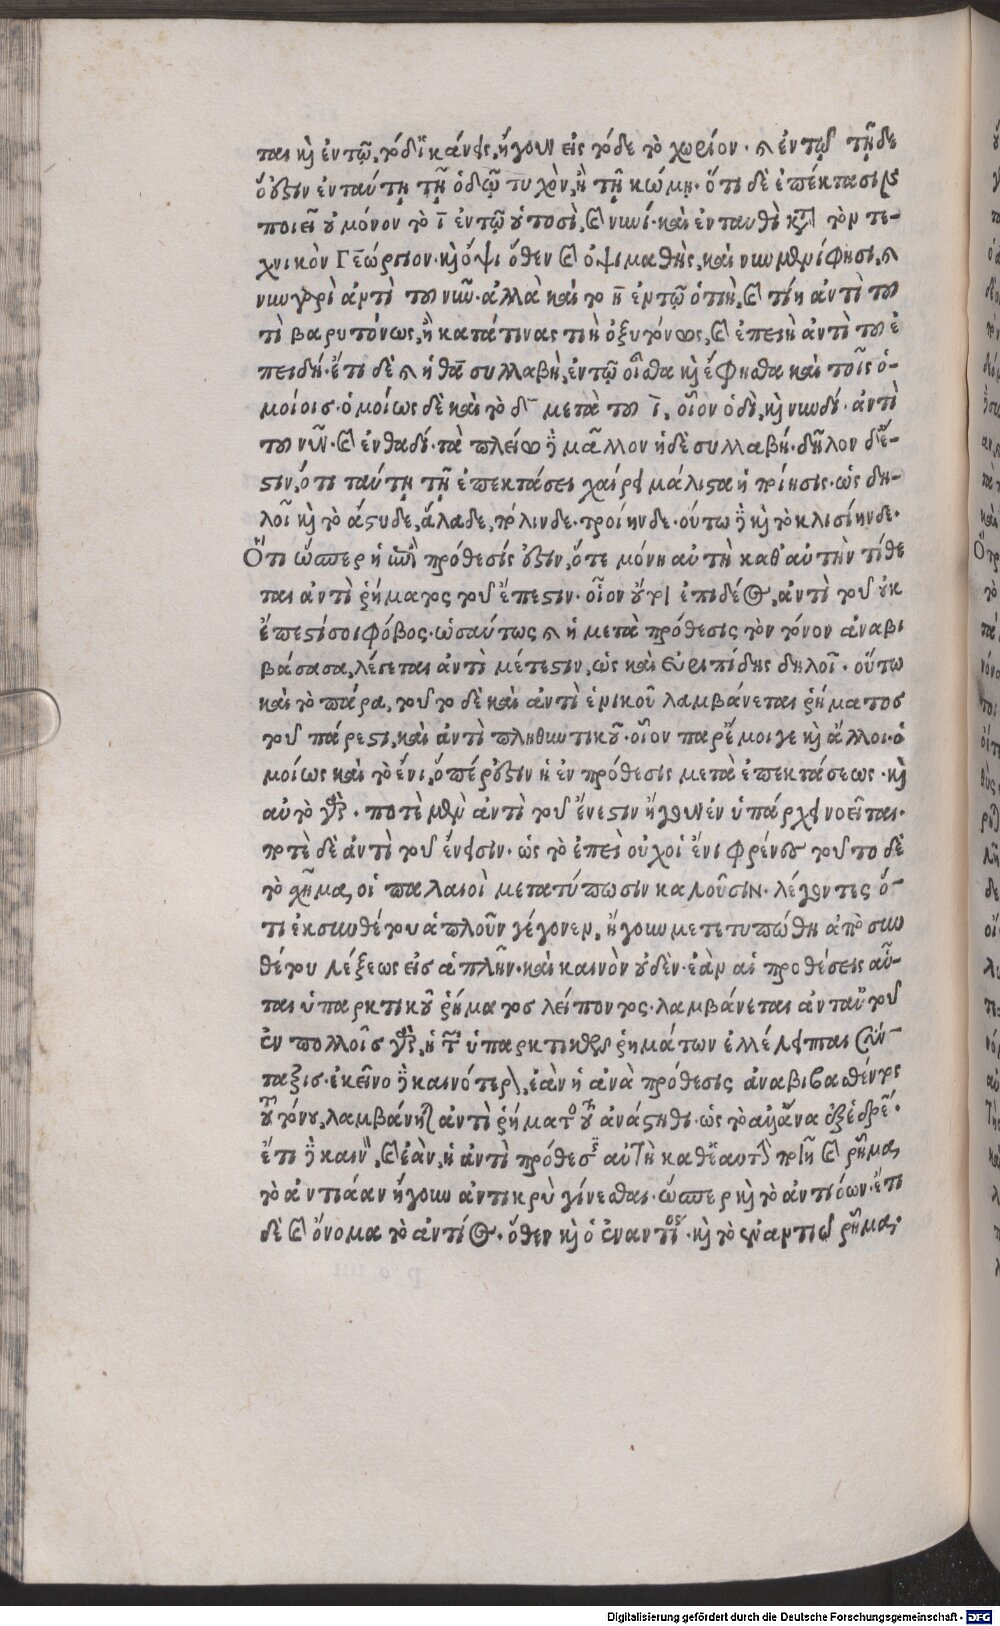 ται καὶ ἐν τῷ, τόδ' ἱκάνεις, ἤγουν εἰς τόδε τὸ χωρίον. καὶ ἐν τῷ τῇδε
οὖσιν ἐνταύτῃ τῇ ὁδῷ τυχὸν, ἢ τῇ κώμῃ. ὅτι δὲ ἐπέκτασιν
ποιεῖ οὐ μόνον τὸ ῑ ἐν τῷ οὑτοσὶ, καὶ νυνί. καὶ ἐνταυθὶ κατὰ τὸν τε-
χνικὸν Γεώργιον. καὶ ὄψι ὅθεν καὶ ὀψιμαθὴς, καὶ νῦν μὲν φησι, καὶ
νῦν γρὶ ἀντὶ τοῦ νῦν. ἀλλὰ καὶ τὸ η̄ ἐν τῷ ὁτιὴ, καὶ τίη ἀντὶ τοῦ
τὶ βαρυτόνως, ἢ κατά τινας τιὴ ὀξυτόνως, καὶ ἐπειὴ ἀντὶ τοῦ ἐ
πειδή. ἔτι δὲ καὶ ἡ θα συλλαβὴ, ἐν τῷ οἶσθα καὶ ἔφησθα καὶ τοῖς ὁ-
μοίοις. ὁμοίως δὲ καὶ τὸ δ̄ μετὰ τοῦ ῑ, οἷον ὁδὶ, καὶ νυνδί. ἀντὶ
τοῦ νῦν. καὶ ἐνθαδί. τὰ πλείω δὲ μᾶλλον ἡ δὲ συλλαβή. δῆλον δ' ἐ-
στιν, ὅτι ταύτῃ τῇ ἐπεκτάσει χαίρει μάλιστα ἡ ποίησις. ὡς δη-
λοῖ καὶ τὸ ἄστυδε, ἅλαδε, πόλινδε. τροίηνδε. οὕτω δὲ καὶ τὸ κλισίηνδε.
Ὅτι ὥσπερ ἡ ἐπὶ πρόθεσίς ἐστιν, ὅτε μόνη αὐτὴ καθ' αὑτὴν τίθε
ται ἀντὶ ῥήματος τοῦ ἔπεστιν. οἷον οὔτι ἐπιδέος, ἀντὶ τοῦ οὐκ
ἔπεστί σοι φόβος. ὡσαύτως καὶ ἡ μετὰ πρόθεσις τὸν τόνον ἀναβι
βάσασα, λέγεται ἀντὶ μέτεστιν, ὡς καὶ Εὐριπίδης δηλοῖ. οὕτω
καὶ τὸ πάρα, τοῦτο δὲ καὶ ἀντὶ ἑνικοῦ λαμβάνεται ῥήματος
τοῦ πάρεστι, καὶ ἀντὶ πληθυντικοῦ. οἷον παρ' ἔμοιγε καὶ ἄλλοι. ὁ
μοίως καὶ τὸ ἔνι, ὅπέρ ἐστιν ἡ ἐν πρόθεσις μετὰ ἐπεκτάσεως. καὶ
αὐτὸ γὰρ. ποτὲ μὲν ἀντὶ τοῦ ἔνεστιν ἤγουν ἐνυπάρχει νοεῖται.
ποτὲ δὲ ἀντὶ τοῦ ἔνεισιν. ὡς τὸ ἐπεὶ οὔ οἱ ἔνι φρένες τοῦτο δὲ
τὸ σχῆμα, οἱ παλαιοὶ μετατύπωσιν καλοῦσιν. λέγοντες ὅ-
τι ἐκ συνθέτου ἁπλοῦν γέγονεν, ἤγουν μετετυπώθη ἀπὸ συν
θέτου λέξεως εἰς ἁπλῆν. καὶ καινὸν οὐδὲν. ἐὰν αἱ προθέσεις αὗ-
ται ὑπαρκτικοῦ ῥήματος λείποντος. λαμβάνεται ἀντ' αὐτοῦ
ἐν πολλοῖς γὰρ, ἡ τῶν ὑπαρκτικῶν ῥημάτων ἐλλέλειπται σύν-
ταξις. ἐκεῖνο δὲ καινότερον, ἐὰν ἡ ἀνὰ πρόθεσις ἀναβιβασθέντος
τοῦ τόνου, λαμβάνηται ἀντὶ ῥήματος τοῦ ἀνάστηθι.
ἔτι δὲ καινὸν, καὶ ἐὰν, ἡ ἀντὶ πρόθεσις αὐτὴ καθ' ἑαυτὴν ποιῇ καὶ ῥῆμα,
τὸ ἀντιάαν ἤγουν ἀντικρὺ γίνεσθαι. ὥσπερ καὶ τὸ ἀντιόων. ἔτι
δὲ καὶ ὄνομα τὸ ἀντίος. ὅθεν καὶ ὁ ἐναντίος. καὶ τὸ ἐναντιῶ ῥῆμα.
Digitalisierung gefördert durch die Deutsche Forschungsgemeinschaft - DFG